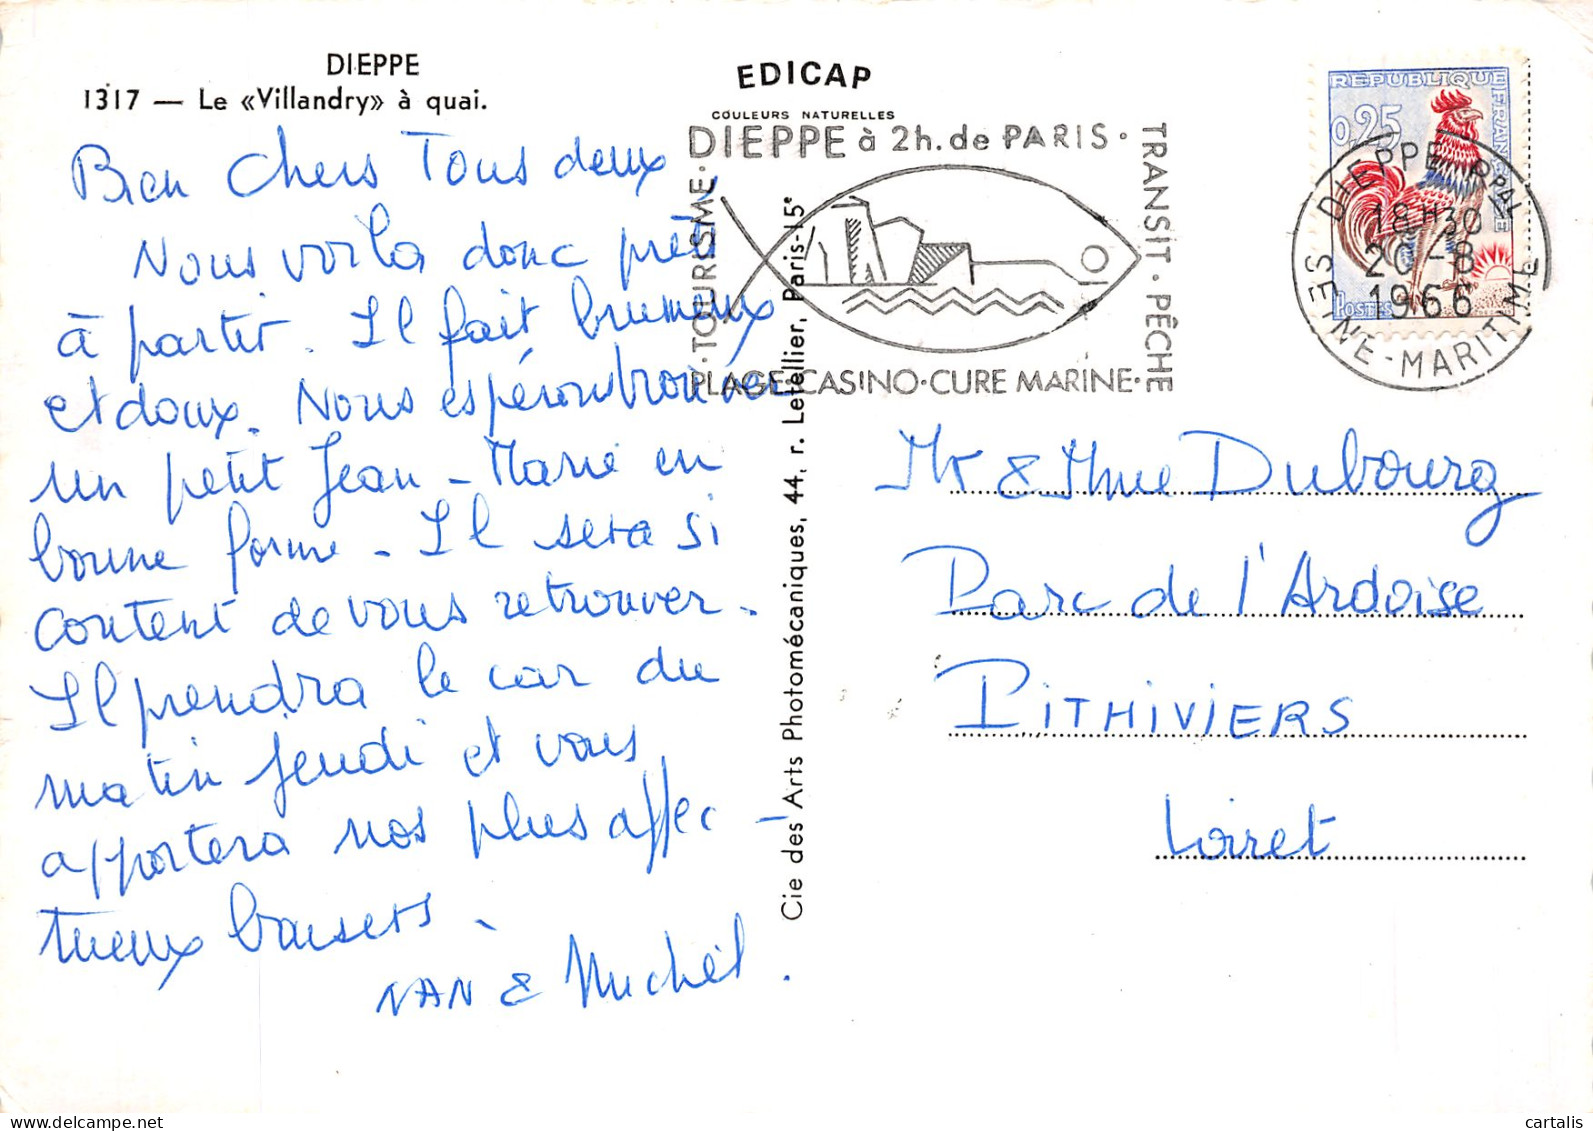 DIEPPE
1317 — Le «Villandry» à quai.
EDICAP
COULEURS NATURELLES
DIEPPE à 2h. de PARIS •
TRANSIT • PÊCHE
• TOURISME •
PLAGE • CASINO • CURE MARINE •
REPUBLIQUE FRANÇAISE
0,25
POSTES
DIEPPE PPAL
18H30
20-8
1966
SEINE-MARITIME
Bien Chers Tous deux
Nous voila donc prêts
à partir. Il fait brumeux
et doux. Nous espérons trouver
un petit Jean-Marie en
bonne forme - Il sera si
content de vous retrouver.
Il prendra le car du
matin jeudi et vous
apportera nos plus affec-
tueux baisers.
NAN & Michel.
Cie des Arts Photomécaniques, 44, r. Letellier, Paris-15e
Mr & Mme Dubourg
Parc de l'Ardoise
PITHIVIERS
Loiret
cartalis